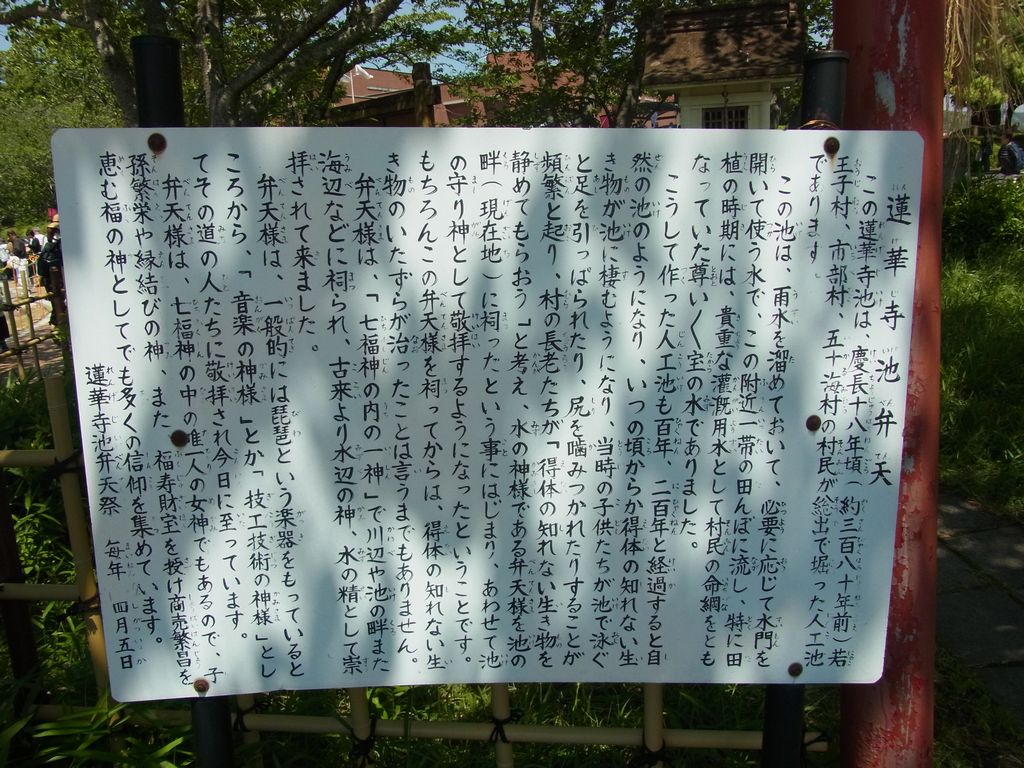 蓮華寺池弁天
この蓮華寺池は、慶長十八年頃(約三百八十年前)若
王子村、市部村、五十海村の村民が総出で掘った人工池
であります。
この池は、雨水を溜めておいて、必要に応じて水門を
開いて使う水で、この附近一帯の田んぼに流し、特に田
植の時期には、貴重な灌漑用水として村民の命綱をとも
なっていた尊いく室の水でありました。
こうして作った人工池も百年、二百年と経過すると自
然の池のようになり、いつの頃からか得体の知れない生
き物が池に棲むようになり、当時の子供たちが池で泳ぐ
と足を引っぱられたり、尻を噛みつかれたりすることが
頻繁と起り、村の長老たちが「得体の知れない生き物を
静めてもらおう」と考え、水の神様である弁天様を池の
畔(現在地)に祠ったという事にはじまり、あわせて池
の守り神として敬拝するようになったということです。
もちろんこの弁天様を祠ってからは、得体の知れない生
き物のいたずらが治ったことは言うまでもありません。
弁天様は、「七福神の内の一神」で川辺や池の畔また
海辺などに祠られ、古来より水辺の神、水の精として崇
拝されて来ました。
弁天様は、一般的には琵琶という楽器をもっていると
ころから、「音楽の神様」とか「技工技術の神様」とし
てその道の人たちに敬拝され今日に至っています。
弁天様は、七福神の中の唯一人の女神でもあるので、子
孫繁栄や縁結びの神、また、福寿財宝を授け商売繁昌を
恵む福の神としてでも多くの信仰を集めています。
蓮華寺池弁天祭 毎年 四月五日